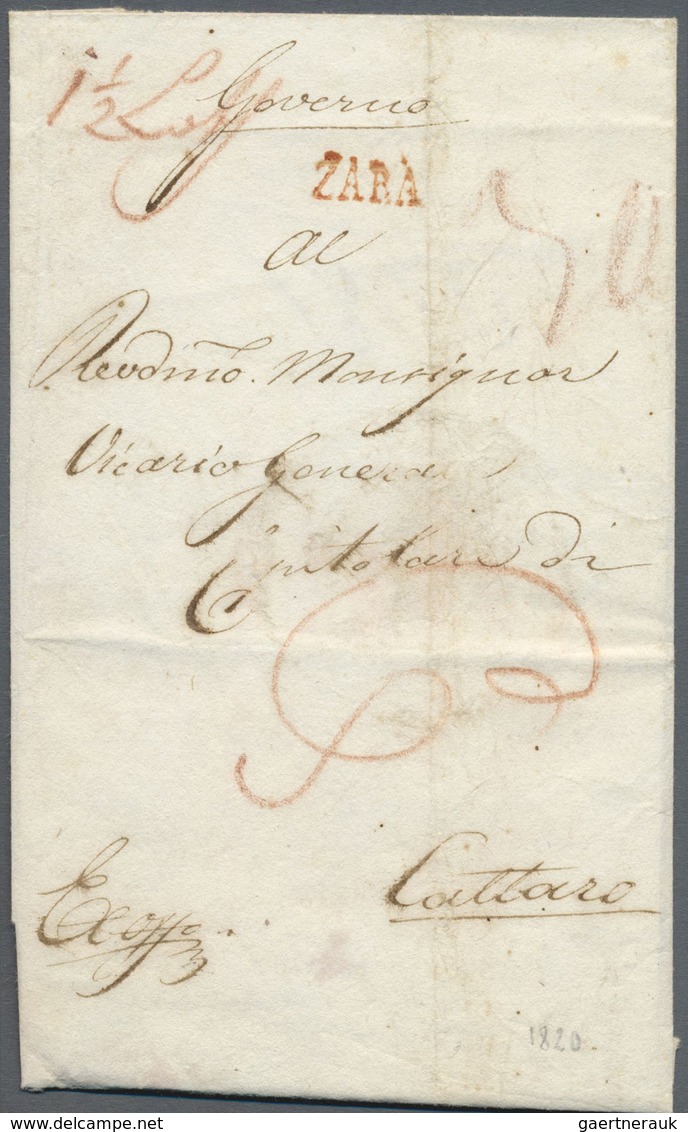 1½ Loth
Governo
ZARA
Al
Revdmo. Monsignor
Vicario Generale
Capitolare di
Cattaro
Ex offo.
1820
gaertnerauk